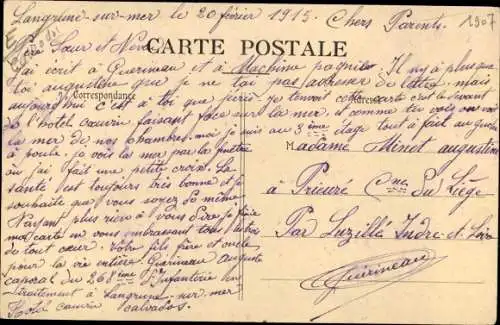 Langrune-sur-mer le 20 février 1915. Chers Parents.
1907
CARTE POSTALE
Père Sœur et Neveu
j'ai écrit à Guérineau et à Machine Il ny a plus que
toi augustine que je ne t'ai pas adresser de lettre mais
Correspondance
Adresse
aujourd'hui c'est à toi que j'écris je tenvoit cette carte c'est le devant
de l'hotel cauvin faisant face sur la mer et comme tu vois on voit
la mer de nos chambres, moi je suis au 3ème étage tout à fait au
je vois la mer par la fenêtre
Madame Minot augustine
ou j'ai fait une petite croix. La
santé est toujours très bonne et je
à Prieuré Cne du Liège
souhaite que vous soyez de même
N'ayant plus rien à vous dire je finie
Par Luzillé Indre et Loire
ma carte en vous embrassant tous
de tout cœur. Votre fils frère et oncle
pour la vie entière Guérineau auguste
Guérineau
caporal du 268ème d'Infanterie en
traitement à Langrune-sur mer
Hotel cauvin calvados.